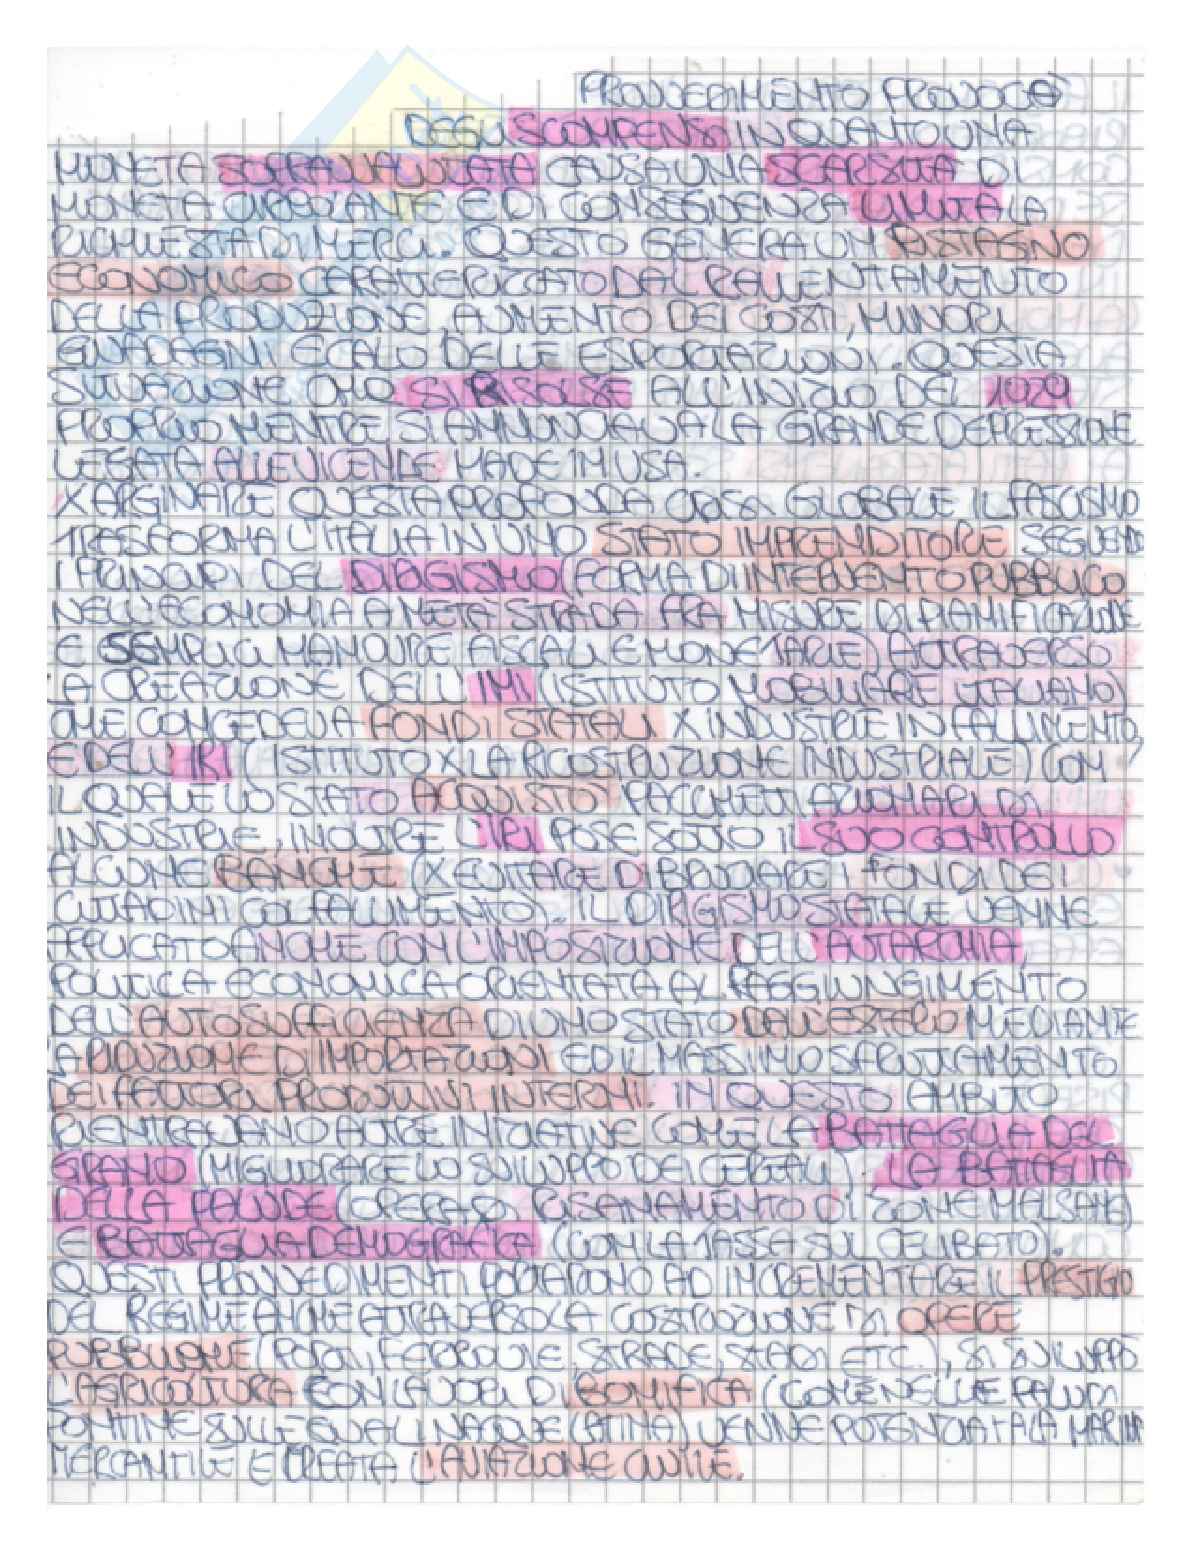 PROVVEDIMENTO PROVOCÒ
DEGLI SCOMPENSI IN QUANTO UNA
MONETA SOPRAVVALUTATA CAUSA UNA SCARSITÀ DI
MONETA CIRCOLANTE E DI CONSEGUENZA LIMITA LA
RICHIESTA DI MERCI. QUESTO GENERA UN RISTAGNO
ECONOMICO CARATTERIZZATO DAL RALLENTAMENTO
DELLA PRODUZIONE, AUMENTO DEI COSTI, MINORI
GUADAGNI E CALO DELLE ESPORTAZIONI. QUESTA
SITUAZIONE SI RISOLSE ALL'INIZIO DEL 1929
PROPRIO MENTRE SI ANNUNCIAVA LA GRANDE DEPRESSIONE
LEGATA ALLE VICENDE MADE IN USA.
X ARGINARE QUESTA PROFONDA CRISI GLOBALE IL FASCISMO
TRASFORMA L'ITALIA IN UNO STATO IMPRENDITORE SEGUENDO
I PRINCIPI DEL DIRIGISMO (FORMA DI INTERVENTO PUBBLICO
NELL'ECONOMIA A METÀ STRADA FRA MISURE DI PIANIFICAZIONE
E SEMPLICI MANOVRE FISCALI E MONETARIE) ATTRAVERSO
LA CREAZIONE DELL'IMI (ISTITUTO MOBILIARE ITALIANO)
CHE CONCEDEVA FONDI STATALI X INDUSTRIE IN FALLIMENTO
E DELL'IRI (ISTITUTO X LA RICOSTRUZIONE INDUSTRIALE) CON
IL QUALE LO STATO ACQUISTÒ PACCHETTI AZIONARI DI
INDUSTRIE, INOLTRE L'IRI POSE SOTTO IL SUO CONTROLLO
ALCUNE BANCHE (X EVITARE DI BRUCIARE I FONDI DEI
CITTADINI COL FALLIMENTO). IL DIRIGISMO STATALE VENNE
APPLICATO ANCHE CON L'IMPOSIZIONE DELL'AUTARCHIA
POLITICA ECONOMICA ORIENTATA AL RAGGIUNGIMENTO
DELL'AUTOSUFFICIENZA DI UNO STATO DALL'ESTERO MEDIANTE
LA RIDUZIONE DI IMPORTAZIONI ED IL MASSIMO SFRUTTAMENTO
DEI FATTORI PRODUTTIVI INTERNI. IN QUESTO AMBITO
RIENTRAVANO ALTRE INIZIATIVE COME LA BATTAGLIA DEL
GRANO (MIGLIORARE LO SVILUPPO DEI CEREALI). LA BATTAGLIA
DELLA PALUDE (OPERA DI RISANAMENTO DI ZONE MALSANE)
E BATTAGLIA DEMOGRAFICA (CON LA TASSA SUL CELIBATO).
QUESTI PROVVEDIMENTI PORTARONO AD INCREMENTARE IL PRESTIGIO
DEL REGIME ANCHE ATTRAVERSO LA COSTRUZIONE DI OPERE
PUBBLICHE (PORTI, FERROVIE, STRADE, STADI ETC.), SI SVILUPPÒ
L'AGRICOLTURA CON LAVORI DI BONIFICA (COME NELLE PALUDI
PONTINE SULLE QUALI NACQUE LATINA) VENNE POTENZIATA LA MARINA
MERCANTILE E CREATA L'AVIAZIONE CIVILE.